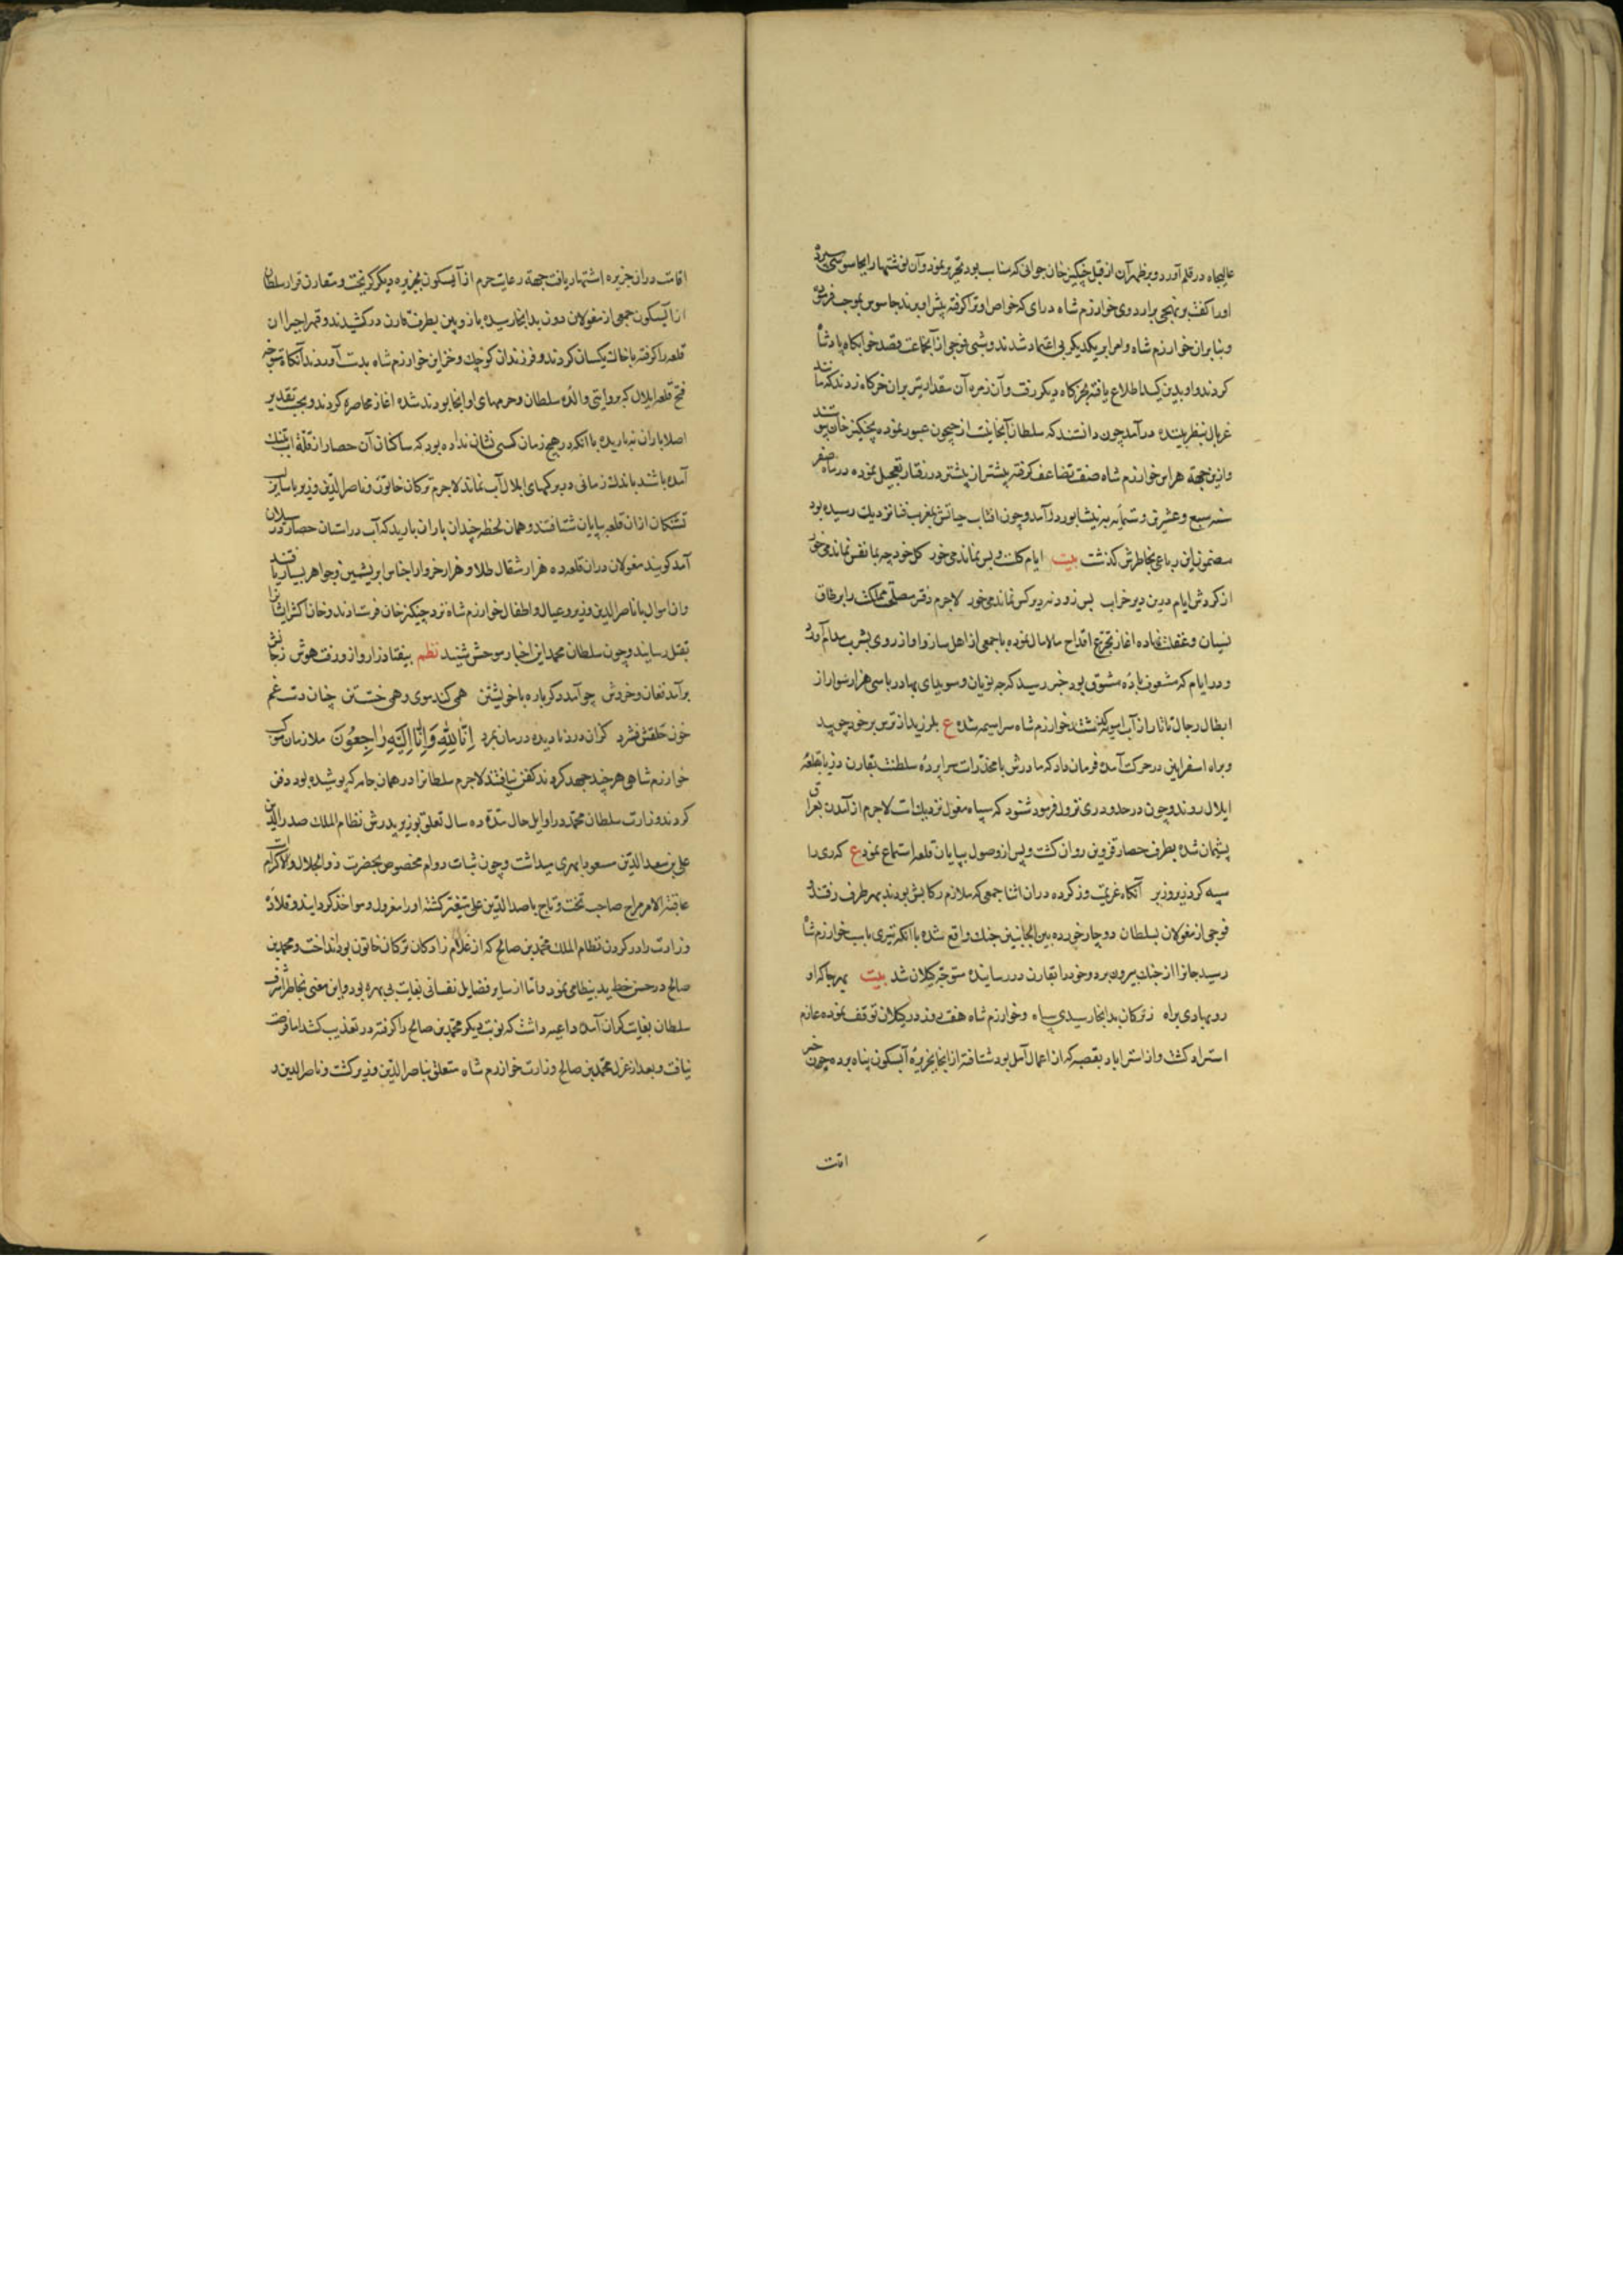 عالیجاه در قلم آورد و بر ظهر آن از قبل چنکیز خان جوابی که مناسب بود تحریر نمود و آن نوشتها را بجاسوسی سپرد
او را کفت بر نهجی بر اردوی خوارزم شاه درای که خواص او ترا کرفته پیش او برند جاسوس بموجب فرموده
و بنابران خوارزم شاه و امرا بر یکدیکر بی اعتماد شدند و شبی فوجی از آنجماعت قصد خوابکاه پادشاه
کردند و او بدین کید اطلاع یافته بخرکاه دیکر رفت و آن زمره آن مقدار تیر بران خرکاه زدند که مانند
غربال بنظر بیننده درآمد چون دانستند که سلطان آنجا نیست از جیحون عبور نموده بچنکیز خان پیوستند
و ازین جهة هراس خوارزم شاه صفت تضاعف کرفته پیشتر از پیشتر در رفتار تعجیل نموده در ماه صفر
سنه سبع و عشرین و ستمأیه به نیشابور درآمد و چون افتاب حیاتش بمغرب فنا نزدیک رسیده بود
مضمون این رباعی بخاطرش کذشت بیت ایام کلست و بس نماند می خور کل خود چه بما نفس نماند می خور
از کردش ایام درین دیر خراب بس زود نه دیر کس نماند می خور لاجرم دفتر مصلحت مملکت را بر طاق
نسیان و غفلت نهاده اغاز تجرع اقداح مالامال نموده با جمعی از اهل ساز و اواز روی بشرب مدام آورد
و در ایام که مشعوف باده مشوق بود خبر رسید که جبه نویان و سوبدای بهادر با سی هزار سوار از
ابطال رجال تاتار از آب امویه کذشتند خوارزم شاه سراسیمه شده ع بلرزید از ترس بر خود چو بید
و براه اسفراین در حرکت آمده فرمان داد که مادرش با مخدرات سراپرده سلطنت بقارن دز یا بقلعه
ایلال روند و چون در حدود ری نزول فرمود شنود که سپاه مغول نزدیک است لاجرم از آمدن بعراق
پشیمان شده بطرف حصار قزوین روان کشت و پس از وصول بپایان قلعه استماع نمود ع که ری را
سیه کرد نیروز بر آنکاه عزیمت وز کرده دران اثنا جمعی که ملازم رکابش بودند بهر طرف رفتند
فوجی از مغولان بسلطان دوچار خورده بین الجانبین جنک واقع شده با انکه تیری باسب خوارزم شاه
رسید جانرا از جنک بیرون برد و خود را بقارن دز رسانیده متوجه کیلان شد بیت بهر جا که او
رو نهادی براه ز ترکان بدانجا رسیدی سپاه و خوارزم شاه هفت روز در کیلان توقف نموده عازم
استراد کشت و از استراباد بقصبه که از اعمال آمل بود شتافته از انجا بجزیره آبسکون پناه برده چون خبر
اقامت
اقامت دران جزیره اشتهار یافت جهة رعایت حرم از آبسکون بجزیره دیکر کریخت و مقارن فرار سلطان
از آبسکون جمعی از مغولان دون بدانجا رسیده باز و بین بطرف قارن در کشیدند و قهرا جبرا ان
قلعه را کرفته با خاک یکسان کردند و فرزندان کوچک و خزاین خوارزم شاه بدست آوردند آنکاه متوجه
فتح قلعه ایلال که بروایتی والده سلطان و حرمهای او انجا بودند شده اغاز محاصره کردند و بحسب تقدیر
اصلا باران نباریده با انکه در هیچ زمان کسی نشان نداده بود که ساکنان آن حصار از قلت اب بتنک
آمده باشند باندک زمانی در برکهای ایلال آب نماند لاجرم ترکان خاتون و ناصر الدین وزیر با سایر
تشنکان از ان قلعه بپایان شتافتند و همان لحظه چندان باران بارید که آب در استان حصار در سیلان
آمد کویند مغولان دران قلعه ده هزار مثقال طلا و هزار خروار اجناس ابریشمین و جواهر بسیار یافتند
و ان اموال با ناصر الدین وزیر و عیال و اطفال خوارزم شاه نزد چنکیز خان فرستادند و خان اکثر ایشانرا
بقتل رسانید و چون سلطان محمد این اخبار موحش شنید نظم بیفتاد زار و از و رفت هوش ز جانش
برآمد فغان و خروش چو آمد دکر باره با خویشتن همی کند موی و همی خست تن چنان دست غم
خون حلقش فشرد کزان درد نادیده درمان بمرد اِنّا لِلّهِ وَاِنّا اِلَیْهِ رٰاجِعُونَ ملازمان موکب
خوارزم شاهی هر چند جهد کردند کفن نیافتند لاجرم سلطانرا در همان جامه که پوشیده بود دفن
کردند وزارت سلطان محمد در اوایل حال مدة ده سال تعلق بوزیر پدرش نظام الملک صدر الدین
علی بن سعد الدین مسعود ابهری میداشت و چون ثبات دوام مخصوص بحضرت ذوالجلال والاکرام است
عاقبة الامر مزاج صاحب تخت و تاج با صدر الدین علی متغیر کشته او را معزول و مواخذ کردانید و قلاده
وزارت را در کردن نظام الملک محمد بن صالح که از غلام زادکان ترکان خاتون بود انداخت و محمد بن
صالح در حسن خط ید بیضا می نمود و اما از سایر فضایل نفسانی بغایت بی بهره بود و این معنی بخاطر اشرف
سلطان بغایت کران آمده داعیه داشت که نوبت دیکر محمد بن صالح را کرفته در تعذیب کشد اما فرصت
نیافت و بعد از عزل محمد بن صالح وزارت خوارزم شاه متعلق بناصر الدین وزیر کشت و ناصر الدین در